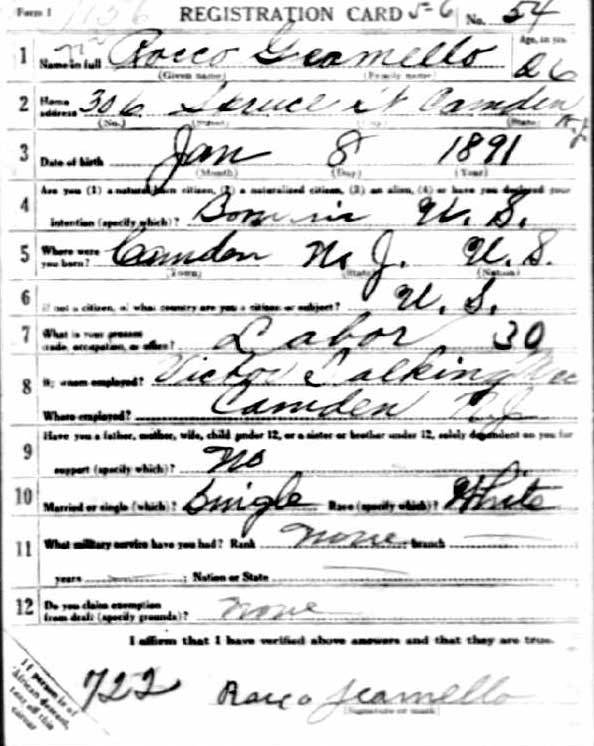 Form 1 1136 REGISTRATION CARD 5-6 No. 54
1 Name in full Rocco Gramello Age, in yrs. 26
(Given name) (Family name)
2 Home address 306 Spruce St Camden N.J.
(No.) (Street) (City) (State)
3 Date of birth Jan 8 1891
(Month) (Day) (Year)
4 Are you (1) a natural-born citizen, (2) a naturalized citizen, (3) an alien, (4) or have you declared your
intention (specify which)? Born in U. S.
5 Where were you born? Camden N. J. U. S.
(Town) (State) (Nation)
6 If not a citizen, of what country are you a citizen or subject? U. S.
7 What is your present trade, occupation, or office? Labor 30
8 By whom employed? Victor Talking Mac
Where employed? Camden N. J.
9 Have you a father, mother, wife, child under 12, or a sister or brother under 12, solely dependent on you for
support (specify which)? No
10 Married or single (which)? Single Race (specify which)? White
11 What military service have you had? Rank none ; branch
years ; Nation or State
12 Do you claim exemption from draft (specify grounds)? none
I affirm that I have verified above answers and that they are true.
722 Rocco
(Signature or mark)
If person is of
African descent,
tear off this
corner